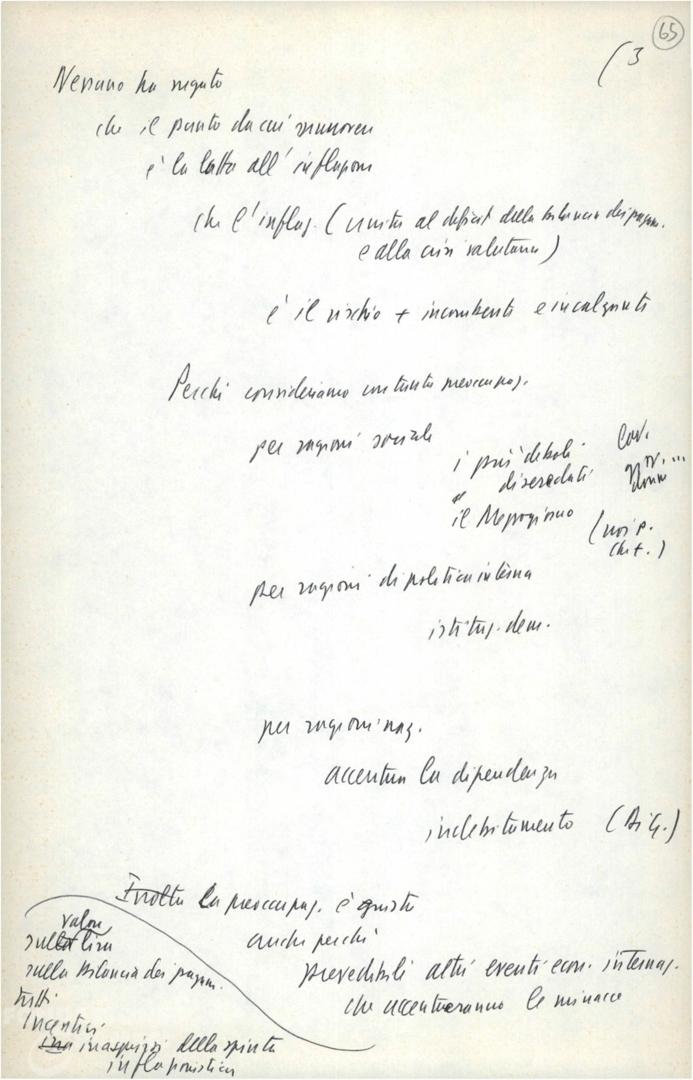 65
(3
Nessuno ha negato
che il punto da cui muovere
è la lotta all'inflazione
che l'inflaz. (unita al deficit della bilancia dei pagam.
e alla crisi valutaria)
è il rischio + incombente e incalzante
Perché consideriamo con tanta preoccupaz.
per ragioni sociali
i più deboli
diseredati
il Mezzogiorno
Lav.
donne
(noi p.
che +.)
per ragioni di politica interna
istituz. dem.
per ragioni naz.
accentua la dipendenza
indebitamento (Big.)
Inoltre la preoccupaz. è giusta
anche perché
prevedibili altri eventi econ. internaz.
che accentueranno le minacce
valore
sulla lira
sulla bilancia dei pagam.
tutti
incentivi
inasprirsi della spinta
inflazionistica